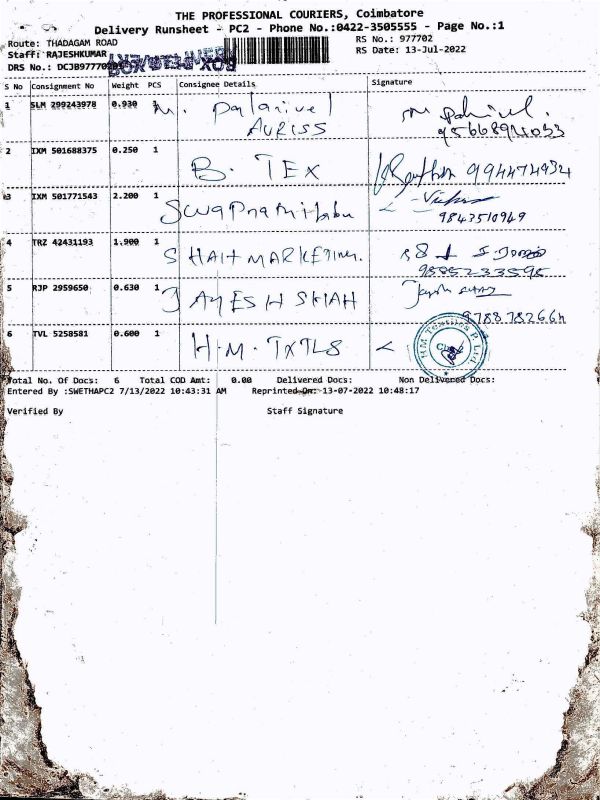 THE PROFESSIONAL COURIERS, Coimbatore
Delivery Runsheet - PC2 - Phone No.:0422-3505555 - Page No.:1
Route: THADAGAM ROAD
RS No.: 977702
Staff: RAJESHKUMAR
RS Date: 13-Jul-2022
DRS No.: DCJB97770
S No Consignment No Weight PCS Consignee Details Signature
1 SLM 299243978 0.930 1 M. Palanivel
AURISS
2 IXM 501688375 0.250 1 B. TEX 994474934
3 IXM 501771543 2.200 1
9843510949
4 TRZ 42431193 1.900 1 S HAH MARKETING.
9885233595
5 RJP 2959650 0.630 1 JAYESH SHAH
9788782664
6 TVL 5258581 0.600 1 H.M. TXTLS
HM Textiles P Ltd
Total No. Of Docs: 6 Total COD Amt: 0.00 Delivered Docs: Non Delivered Docs:
Entered By :SWETHAPC2 7/13/2022 10:43:31 AM Reprinted On: 13-07-2022 10:48:17
Verified By Staff Signature